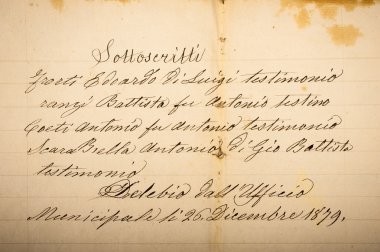 Sottoscritti
Goeti Edoardo Di Luigi testimonio
rangi Battista fu Antonio testino
Goeti Antonio fu Antonio testimonio
Scara Bella Antonio Di Gio Battista
testimonio
Delebio dall'Ufficio
Municipale li 26. Dicembre 1879.